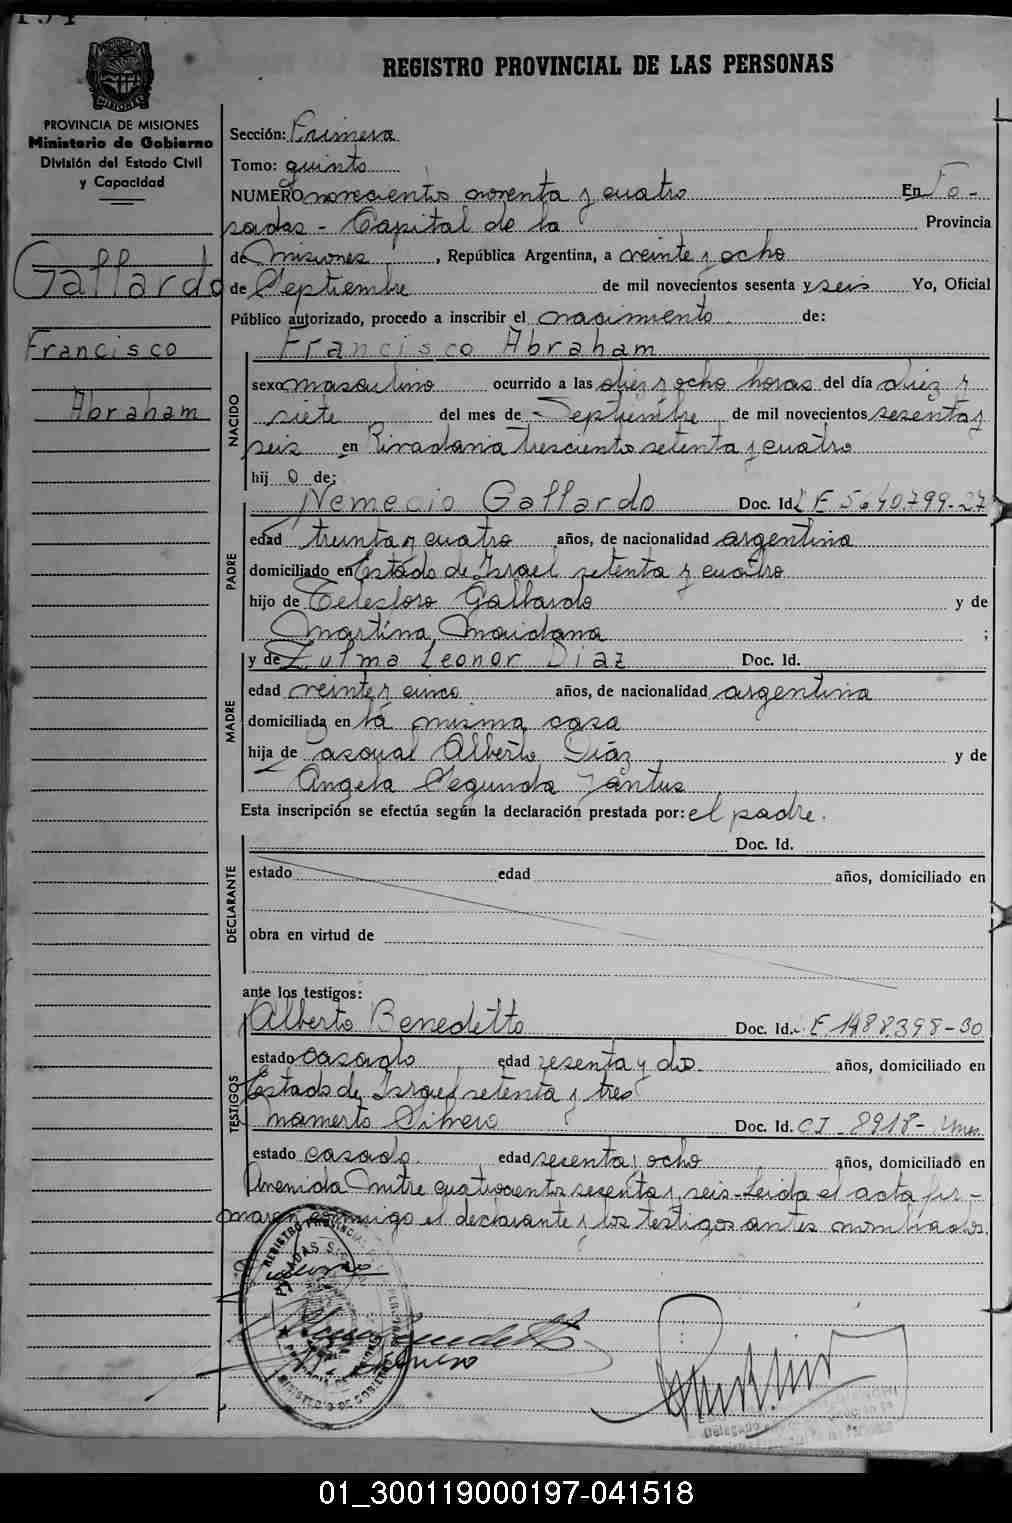 194
REGISTRO PROVINCIAL DE LAS PERSONAS
PROVINCIA DE MISIONES
Ministerio de Gobierno
División del Estado Civil
y Capacidad
Gallardo
Francisco
Abraham
Sección: Primera
Tomo: quinto
NUMERO novecientos noventa y cuatro En Po-
sadas - Capital de la Provincia
de Misiones, República Argentina, a veinte y ocho
de Septiembre de mil novecientos sesenta y seis Yo, Oficial
Público autorizado, procedo a inscribir el nacimiento de:
NACIDO
Francisco Abraham
sexo masculino ocurrido a las diez y ocho horas del día diez y
siete del mes de Septiembre de mil novecientos sesenta y
seis en Rivadavia tresciento setenta y cuatro
hij o de:
PADRE
Nemecio Gallardo Doc. Id. L E 5640.799-27
edad treinta y cuatro años, de nacionalidad argentina
domiciliado en Estado de Israel setenta y cuatro
hijo de Telesforo Gallardo y de
Martina Maidana ;
MADRE
y de Zulma Leonor Diaz Doc. Id.
edad veinte y cinco años, de nacionalidad argentina
domiciliada en la misma casa
hija de Pascual Alberto Diáz y de
Angela Segunda
Esta inscripción se efectúa según la declaración prestada por: el padre.
DECLARANTE
Doc. Id.
estado edad años, domiciliado en
obra en virtud de
ante los testigos:
TESTIGOS
Alberto Benedetto Doc. Id. E 1488398-30
estado casado edad sesenta y dos años, domiciliado en
Estado de Israel setenta y tres
Mamerto Doc. Id. CI 8918- Mnes.
estado casado edad sesenta y ocho años, domiciliado en
Avenida Mitre cuatrocientos sesenta y seis - Leida el acta fir-
maron conmigo el declarante y los testigos antes nombrados.
REGISTRO PROVINCIAL
MINISTERIO DE GOBIERNO
Delegado
01_300119000197-041518